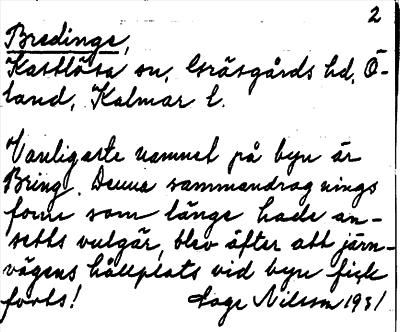 2
Bredinge,
Kastlösa sn, Gräsgårds hd, Ö-
land, Kalmar l.
Vanligaste namnet på byn är
Bring. Denna sammandragnings
form som länge hade an-
setts vulgär, blev äfter att järn-
vägens hållplats vid byn fick
förts!
Åage Nilsson 1931